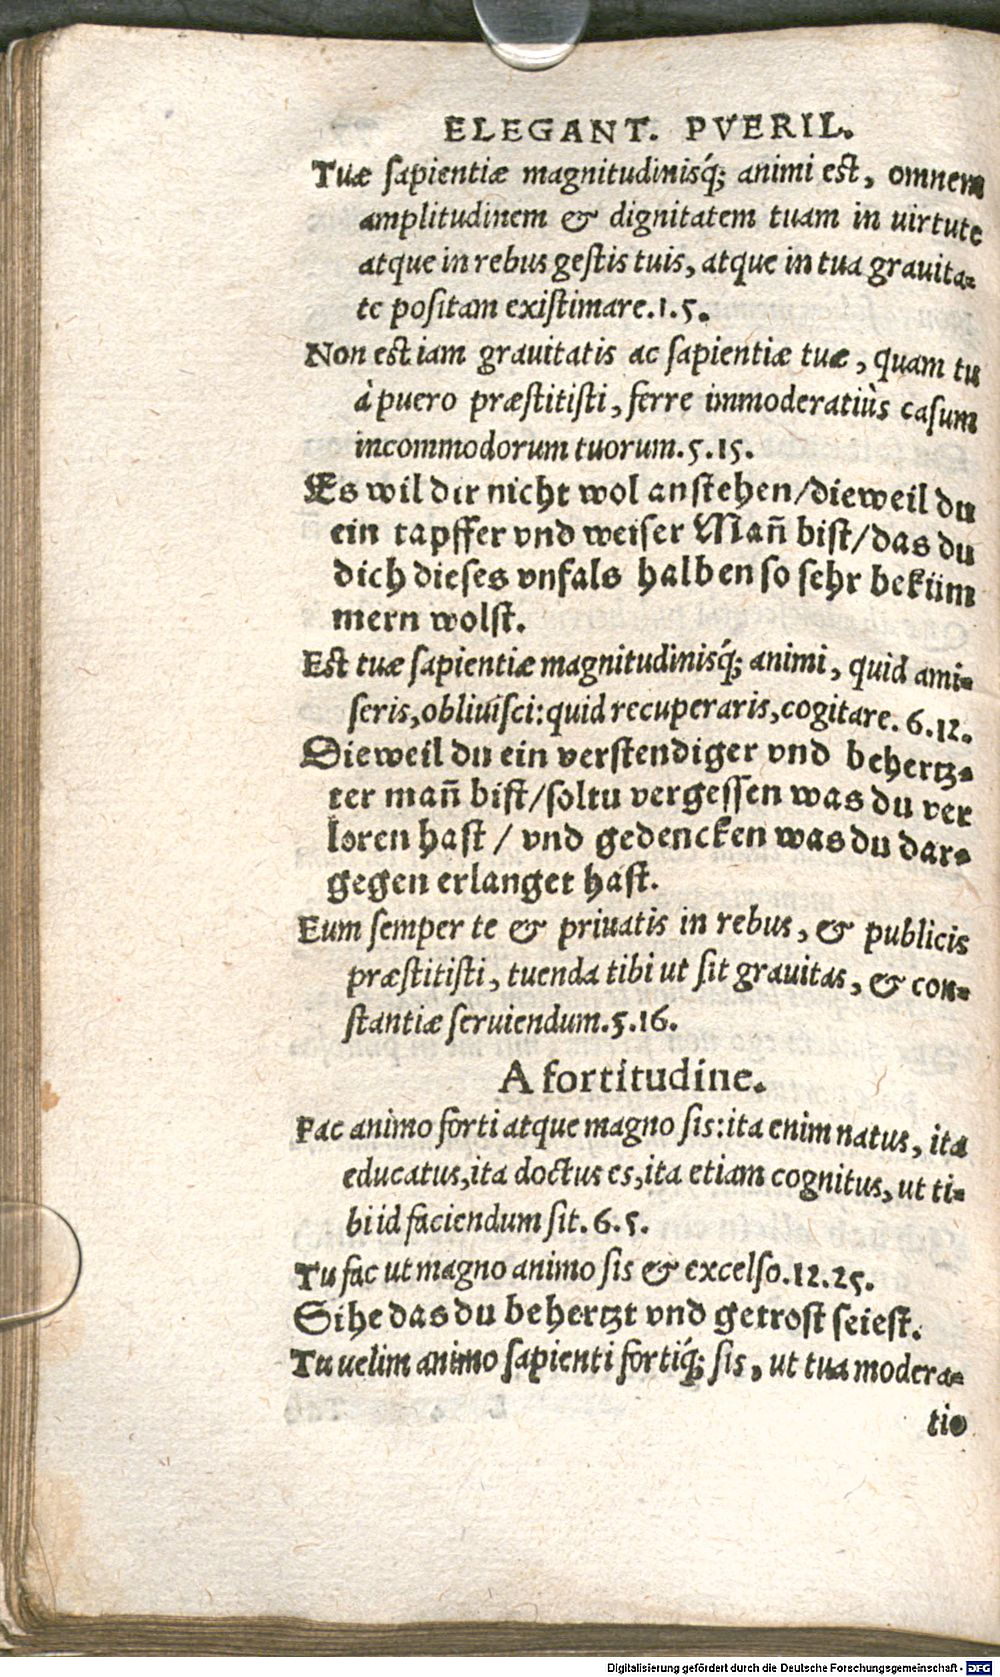 ELEGANT. PVERIL.
Tuæ sapientiæ magnitudinisq́; animi est, omnem
amplitudinem & dignitatem tuam in uirtute
atque in rebus gestis tuis, atque in tua grauita-
te positam existimare. 1. 5.
Non est iam grauitatis ac sapientiæ tuæ, quam tu
à puero præstitisti, ferre immoderatiùs casum
incommodorum tuorum. 5. 15.
Es wil dir nicht wol anstehen/dieweil du
ein tapffer vnd weiser Mañ bist/das du
dich dieses vnfals halben so sehr beküm
mern wolst.
Est tuæ sapientiæ magnitudinisq́; animi, quid ami-
seris, obliuisci: quid recuperaris, cogitare. 6. 12.
Dieweil du ein verstendiger vnd behertz-
ter mañ bist/soltu vergessen was du ver
loren hast / vnd gedencken was du dar-
gegen erlanget hast.
Eum semper te & priuatis in rebus, & publicis
præstitisti, tuenda tibi ut sit grauitas, & con-
stantiæ seruiendum. 5. 16.
A fortitudine.
Fac animo forti atque magno sis: ita enim natus, ita
educatus, ita doctus es, ita etiam cognitus, ut ti-
bi id faciendum sit. 6. 5.
Tu fac ut magno animo sis & excelso. 12. 25.
Sihe das du behertzt vnd getrost seiest.
Tu uelim animo sapienti fortiq́; sis, ut tua modera-
tio
Digitalisierung gefördert durch die Deutsche Forschungsgemeinschaft - DFG